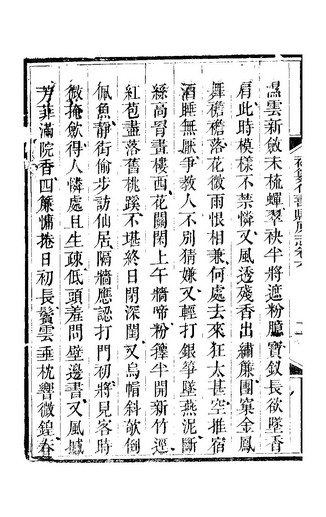 濕雲新斂未梳蟬翠袂半將遮粉臆寶釵長欲墜香
肩此時模樣不禁憐又風透殘香出繡簾團窠金鳳
舞襜襜落花微雨恨相兼何處去來狂太甚空推宿
酒睡無厭爭教人不別猜嫌又輕打銀箏墜燕泥斷
絲高罥畫樓西花開閑上午牆啼粉籜半開新竹逕
紅苞盡落舊桃蹊不堪終日閉深閨又烏帽斜欹倒
佩魚靜街偷步訪仙居隔牆應認打門初將見客時
微掩斂得人憐處且生疎低頭羞問壁邊書又風撼
芳菲滿院香四簾慵捲日初長鬢雲垂枕響微鍠春